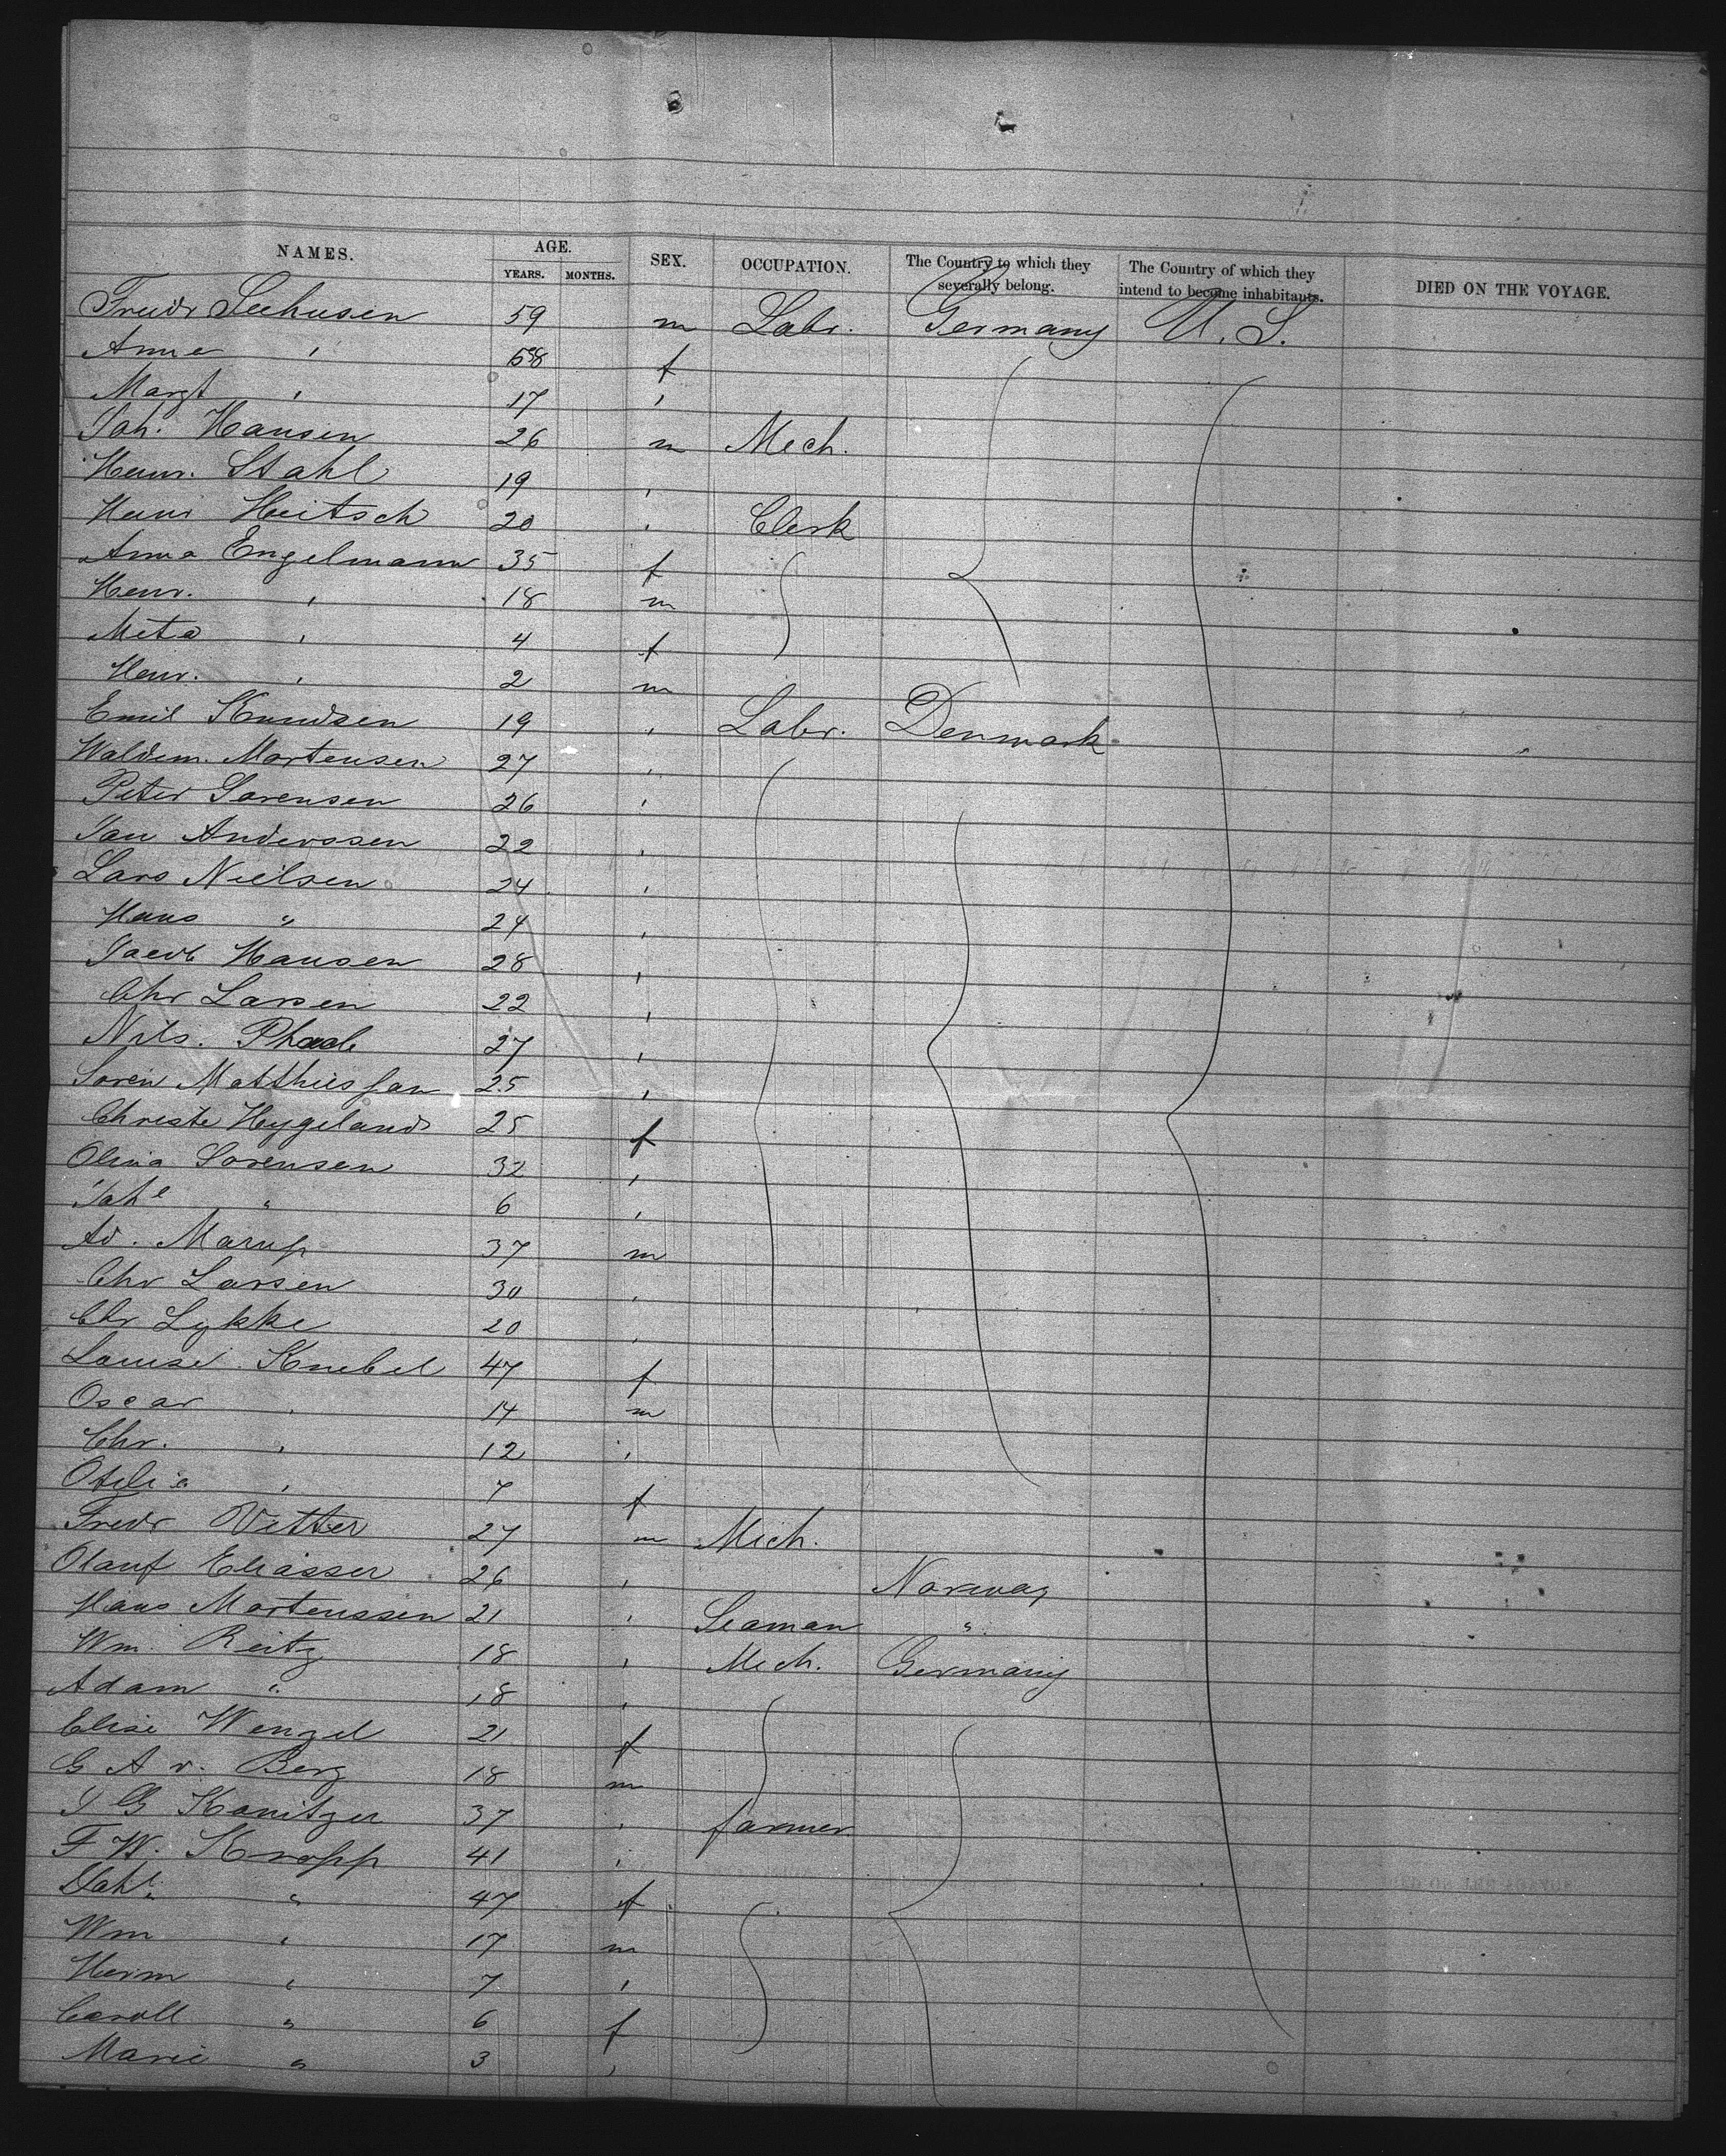 NAMES. AGE. YEARS. MONTHS. SEX. OCCUPATION. The Country to which they severally belong. The Country of which they intend to become inhabitants. DIED ON THE VOYAGE.
Friedr Seehusen 59 m Labr. Germany U. S.
Anna " 58 f
Margt " 17 "
Joh. Hansen 26 m Mech.
Henr. Stahl 19 "
Hans Heitsch 20 " Clerk
Anna Engelmann 35 f
Henr. " 18 m
Meta " 4 f
Henr. " 2 m
Emil Knudsen 19 " Labr. Denmark
Waldem. Mortensen 27 "
Peter Sorensen 26 "
Jan Anderssen 22 "
Lars Nielsen 24 "
Hans " 24 "
Jacob Hansen 28 "
Chr Larsen 22 "
Nils. 27 "
Soren Matthiesson 25 "
Christe Hygeland 25 f
Olina Sorensen 32 "
Johe " 6 "
Ad. Marup 37 m
Chr Larsen 30 "
Chr Lykke 20 "
Louise Knebel 47 f
Oscar " 14 m
Chr. " 12 "
Otilia " 7 f
Fredr Vetter 27 m Mech.
Olauf Eliasser 26 " Norway
Hans Mortenssen 21 " Seaman "
Wm. Reitz 18 " Mech. Germany
Adam " 18 "
Elise Wenzel 21 f
G A v. Berg 18 m
J G Kanitzer 37 " farmer
F W. Kropp 41 "
" 47 f
Wm " 17 m
Herm " 7 "
Caroll " 6 f
Marie " 3 "